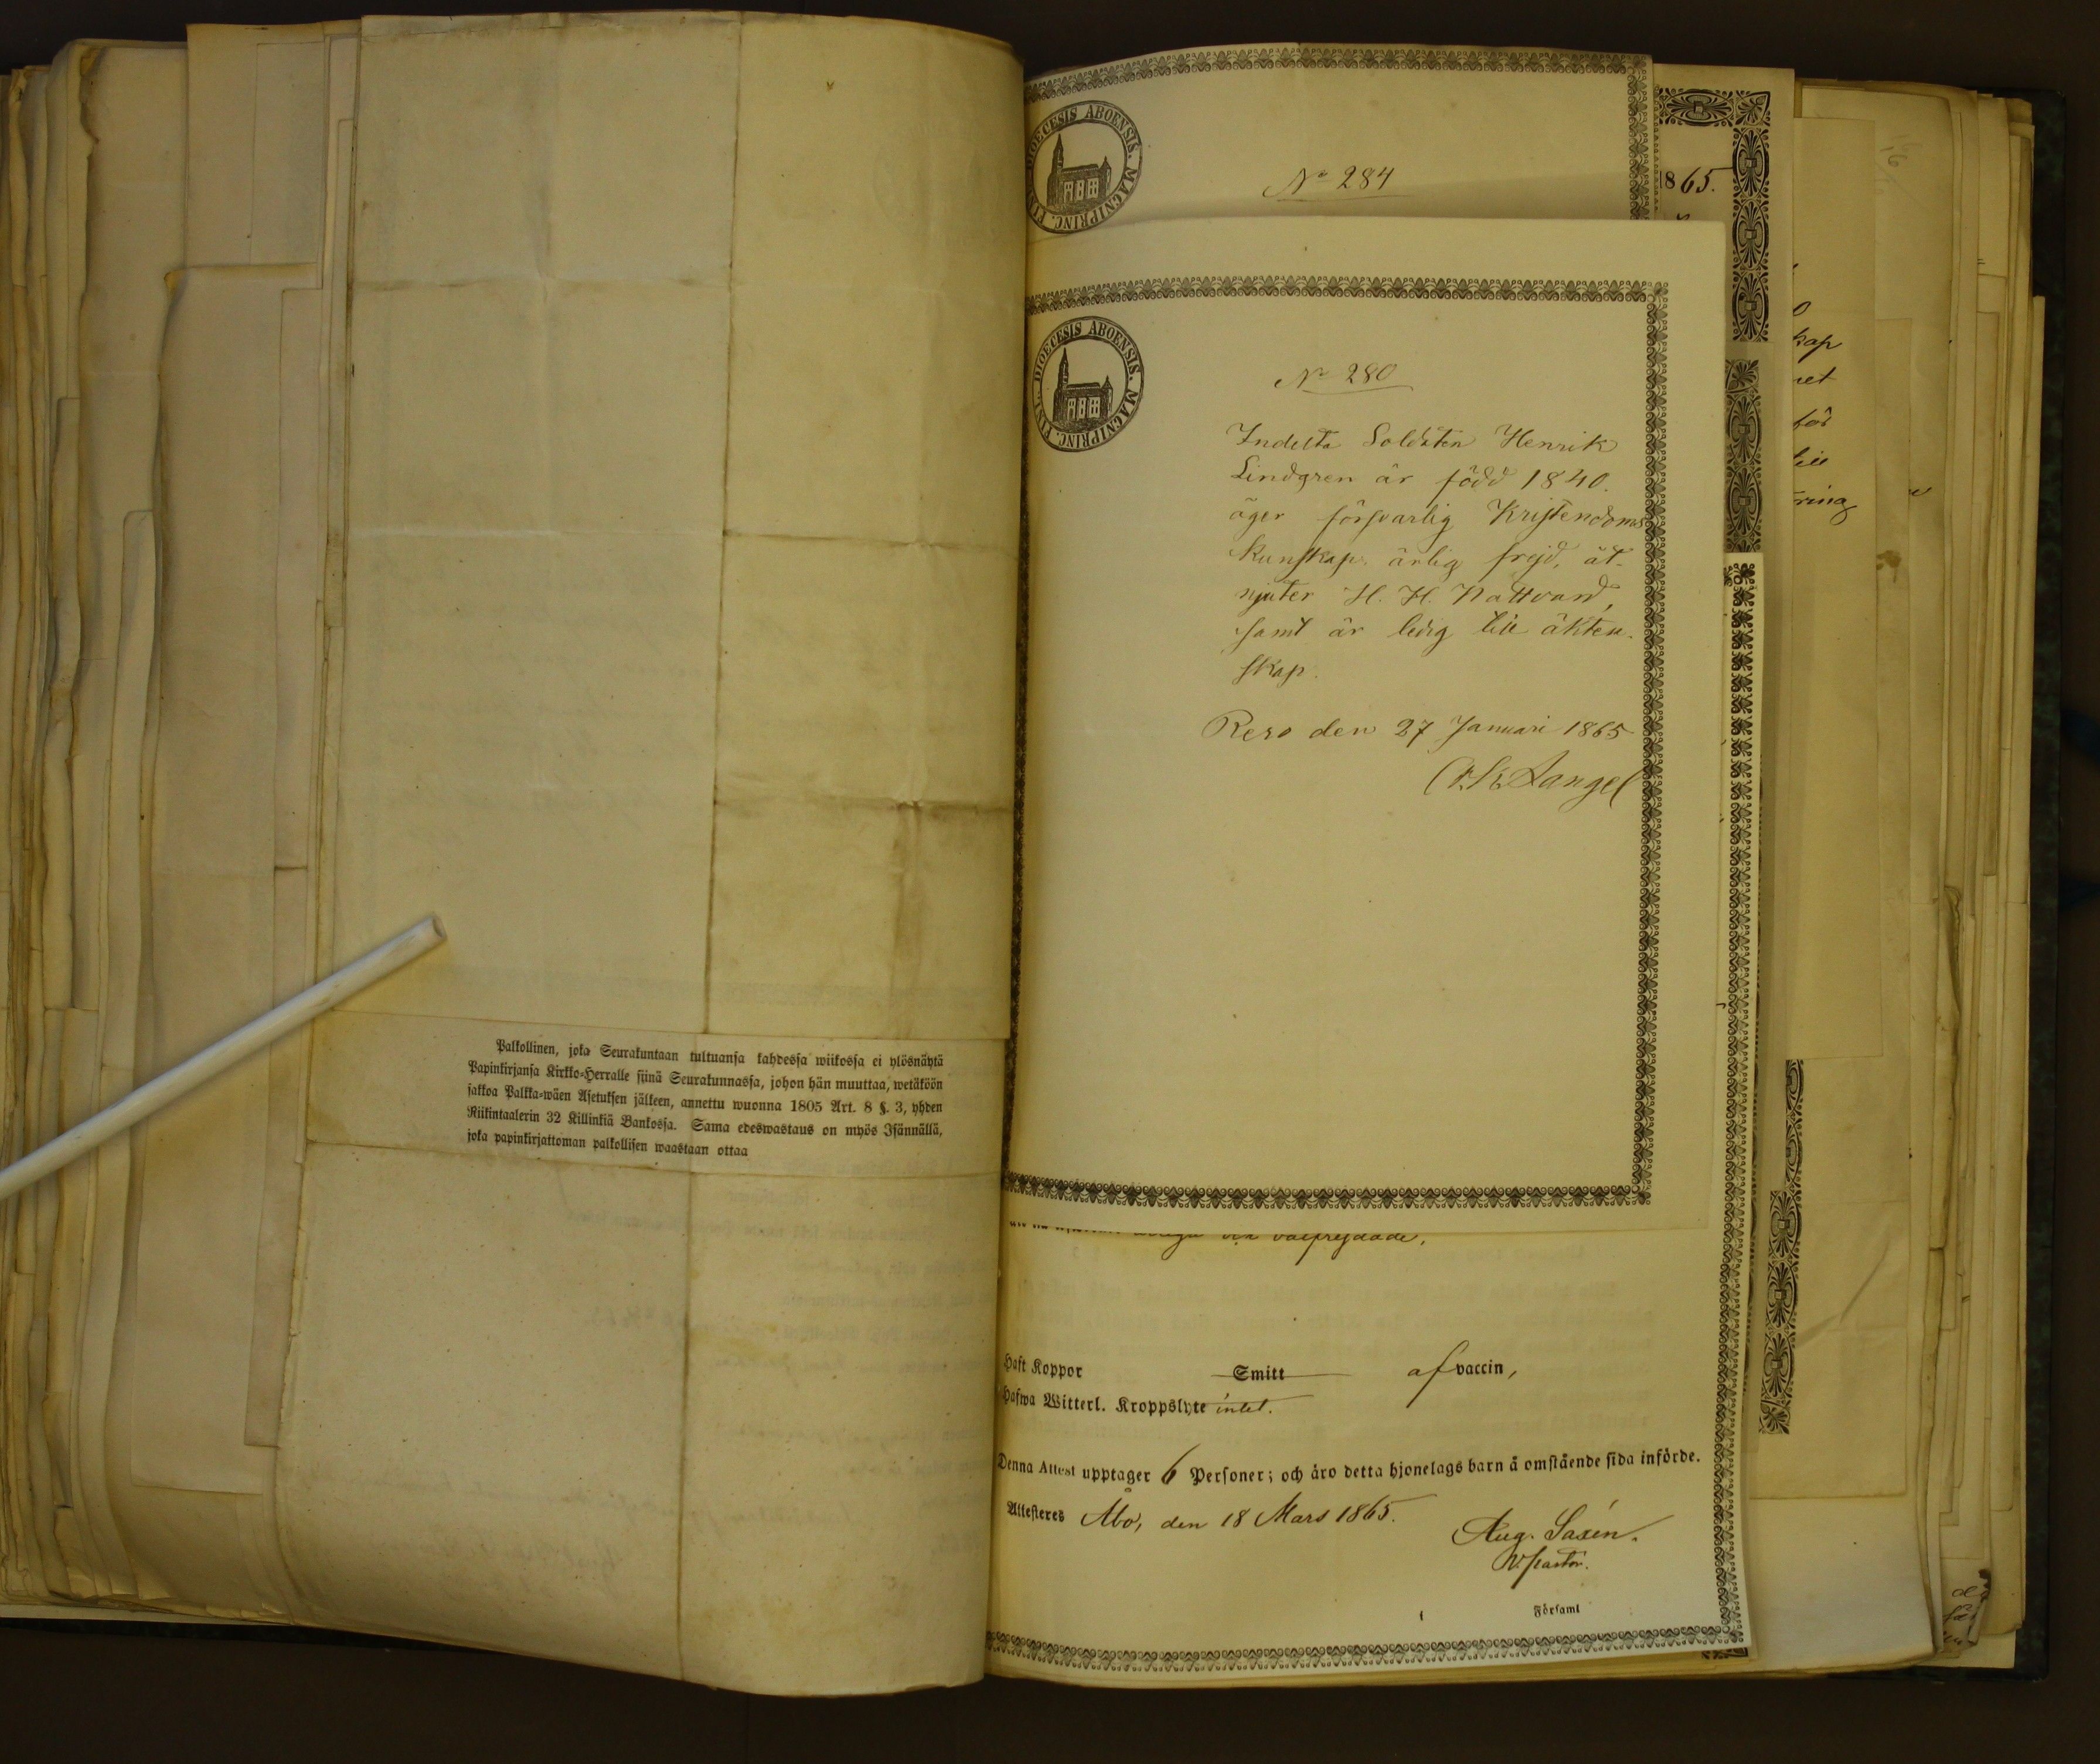 Palkollinen, joka Seurakuntaan tultuansa kahdessa wiikossa ei ylösnäytä
Papinkirjansa Kirkko-Herralle siinä Seurakunnassa, johon hän muuttaa, wetäköön
sakkoa Palkka-wäen Asetuksen jälkeen, annettu wuonna 1805 Art. 8 §. 3, yhden
Riikintaalerin 32 Killinkiä Bankossa. Sama edeswastaus on myös Isännällä,
joka papinkirjattoman palkollisen waastaan ottaa
DIOECESIS ABOENSIS. MAGNIPRINC.
No 284
1865.
DIOECESIS ABOENSIS. MAGNIPRINC. FINL.
No 280
Indelta Soldaten Henrik
Lindgren är född 1840.
äger försvarlig Kristendoms
kunskap, ärlig frejd, åt-
njuter H. H. Nattvard,
samt är ledig till äkten-
skap.
Reso den 27 Januari 1865
Langel
kap
för
till
och välfrejdade.
Haft Koppor Smitt af vaccin,
Hafwa Witterl. Kroppslyte intet.
Denna Attest upptager 6 Personer; och äro detta hjonelags barn å omstående sida införde.
Attesteres Åbo, den 18 Mars 1865.
Aug. Saxén.
V. pastor.
i Församl